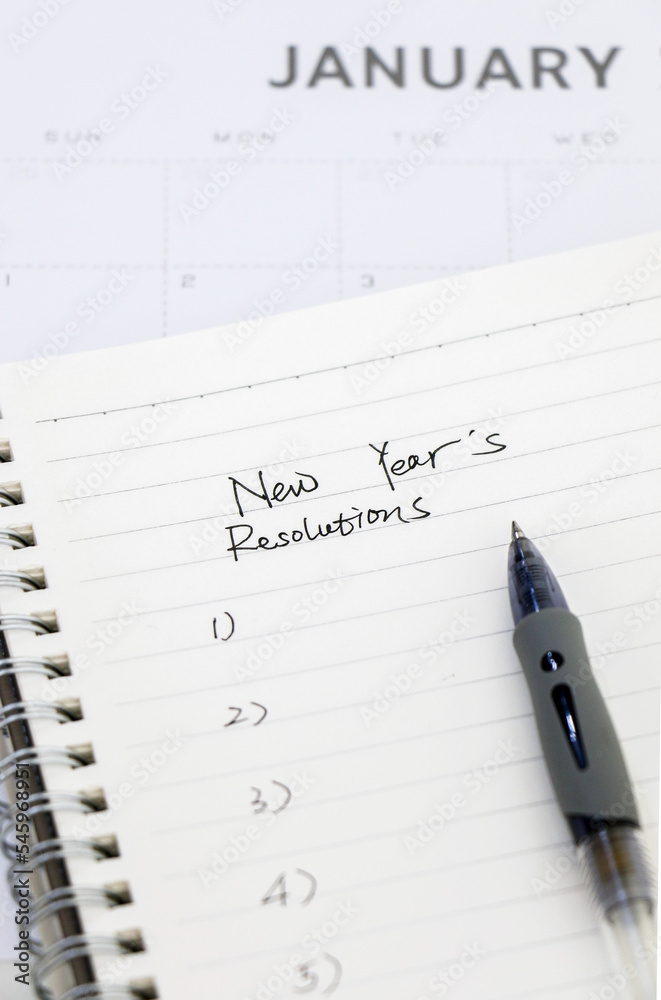 JANUARY
SUN MON TUE WED
1 2 3
New Year's
Resolutions
1)
2)
3)
4)
5)
Adobe Stock | #545968951